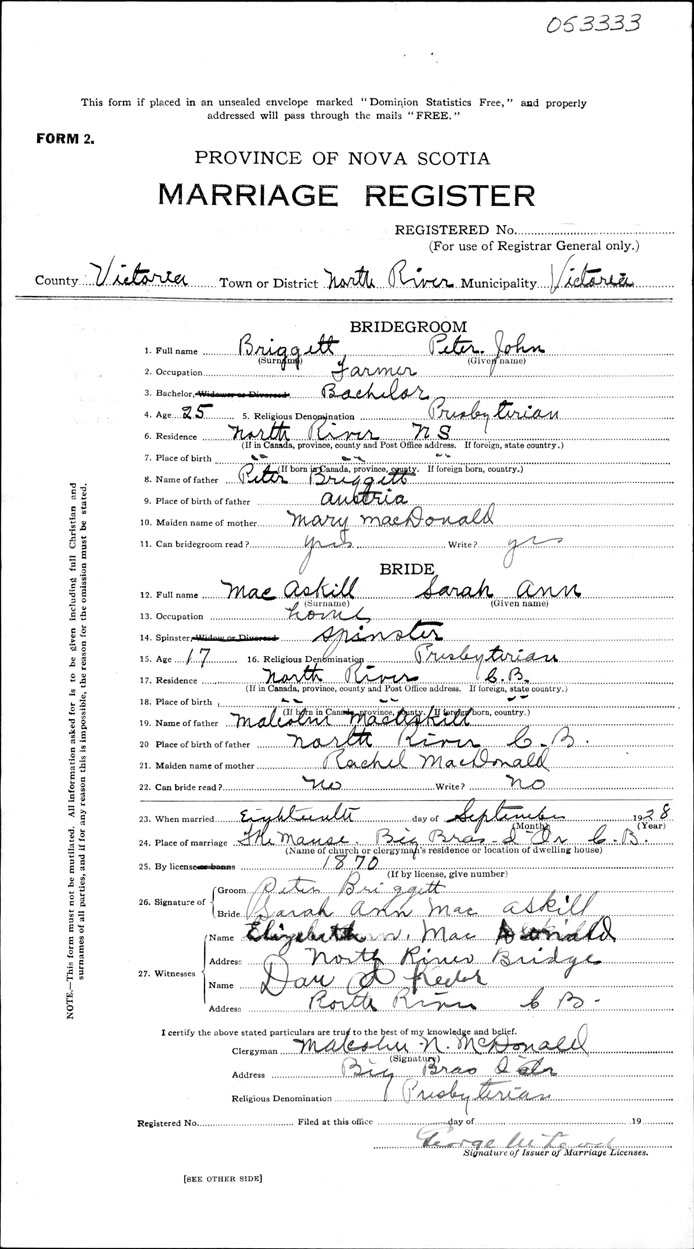 053333
This form if placed in an unsealed envelope marked "Dominion Statistics Free," and properly
addressed will pass through the mails "FREE."
FORM 2.
PROVINCE OF NOVA SCOTIA
MARRIAGE REGISTER
REGISTERED No.
(For use of Registrar General only.)
County Victoria Town or District North River Municipality Victoria
BRIDEGROOM
1. Full name Briggett Peter John
(Surname) (Given name)
2. Occupation Farmer
3. Bachelor, Widower or Divorced Bachelor
4. Age 25 5. Religious Denomination Presbyterian
6. Residence North River N S
(If in Canada, province, county and Post Office address. If foreign, state country.)
7. Place of birth " " "
(If born in Canada, province, county. If foreign born, country.)
8. Name of father Peter Briggett
9. Place of birth of father Austria
10. Maiden name of mother Mary MacDonald
11. Can bridegroom read? yes Write? yes
BRIDE
12. Full name Mac Askill Sarah Ann
(Surname) (Given name)
13. Occupation home
14. Spinster, Widow or Divorced Spinster
15. Age 17 16. Religious Denomination Presbyterian
17. Residence North River C.B.
(If in Canada, province, county and Post Office address. If foreign, state country.)
18. Place of birth " " "
(If born in Canada, province, county. If foreign born, country.)
19. Name of father Malcolm MacAskill
20 Place of birth of father North River C.B.
21. Maiden name of mother Rachel MacDonald
22. Can bride read? No Write? No
23. When married Eighteenth day of September 1928
(Month) (Year)
24. Place of marriage The Manse, Big Bras d'Or C.B.
(Name of church or clergyman's residence or location of dwelling house)
25. By license or banns 1870
(If by license, give number)
26. Signature of
Groom Peter Briggett
Bride Sarah Ann Mac Askill
27. Witnesses
Name Elizabeth Mac Donald
Address North River Bridge
Name Dan
Address North River C B.
I certify the above stated particulars are true to the best of my knowledge and belief.
Clergyman Malcolm N. McDonald
(Signature)
Address Big Bras d'Or
Religious Denomination Presbyterian
Registered No. Filed at this office day of 19
George
Signature of Issuer of Marriage Licenses.
[SEE OTHER SIDE]
NOTE.—This form must not be mutilated. All information asked for is to be given including full Christian and
surnames of all parties, and if for any reason this is impossible, the reason for the omission must be stated.